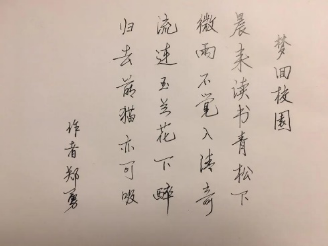 梦回校园
晨来读书青松下
微雨不觉入清奇
流连玉兰花下醉
归去前猫亦可吸
作者郑勇